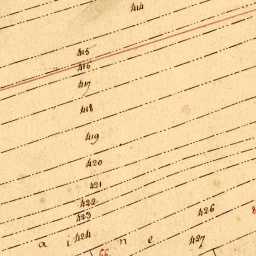 414
415
416
417
418
419
420
421
422
423
424
426
427
a i n e
66
8